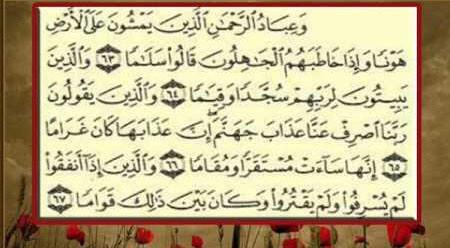 وَعِبَادُ ٱلرَّحْمَٰنِ ٱلَّذِينَ يَمْشُونَ عَلَى ٱلْأَرْضِ
هَوْنًا وَإِذَا خَاطَبَهُمُ ٱلْجَٰهِلُونَ قَالُوا۟ سَلَٰمًا ٦٣ وَٱلَّذِينَ
يَبِيتُونَ لِرَبِّهِمْ سُجَّدًا وَقِيَٰمًا ٦٤ وَٱلَّذِينَ يَقُولُونَ
رَبَّنَا ٱصْرِفْ عَنَّا عَذَابَ جَهَنَّمَ إِنَّ عَذَابَهَا كَانَ غَرَامًا
٦٥ إِنَّهَا سَآءَتْ مُسْتَقَرًّا وَمُقَامًا ٦٦ وَٱلَّذِينَ إِذَآ أَنفَقُوا۟
لَمْ يُسْرِفُوا۟ وَلَمْ يَقْتُرُوا۟ وَكَانَ بَيْنَ ذَٰلِكَ قَوَامًا ٦٧